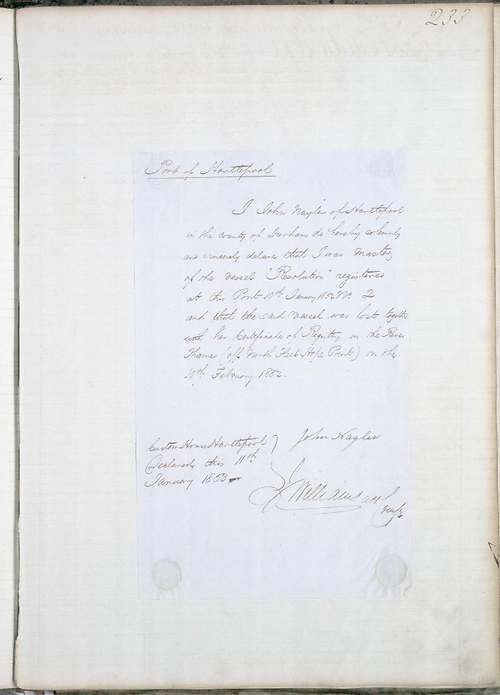 233
Port of Hartlepool
I John Nagler of Hartlepool
in the county of Durham do hereby solemnly
and sincerely declare that I was Master
of the vessel "Resolution" registered
at this Port 10th January 1852 No 2
and that the said vessel was lost together
with her Certificate of Registry in the River
Thames (off North Fleet Hope Point) on the
February 1862
Custom House Hartlepool
Declared this 11th
January 1863
John Nagler
Williams